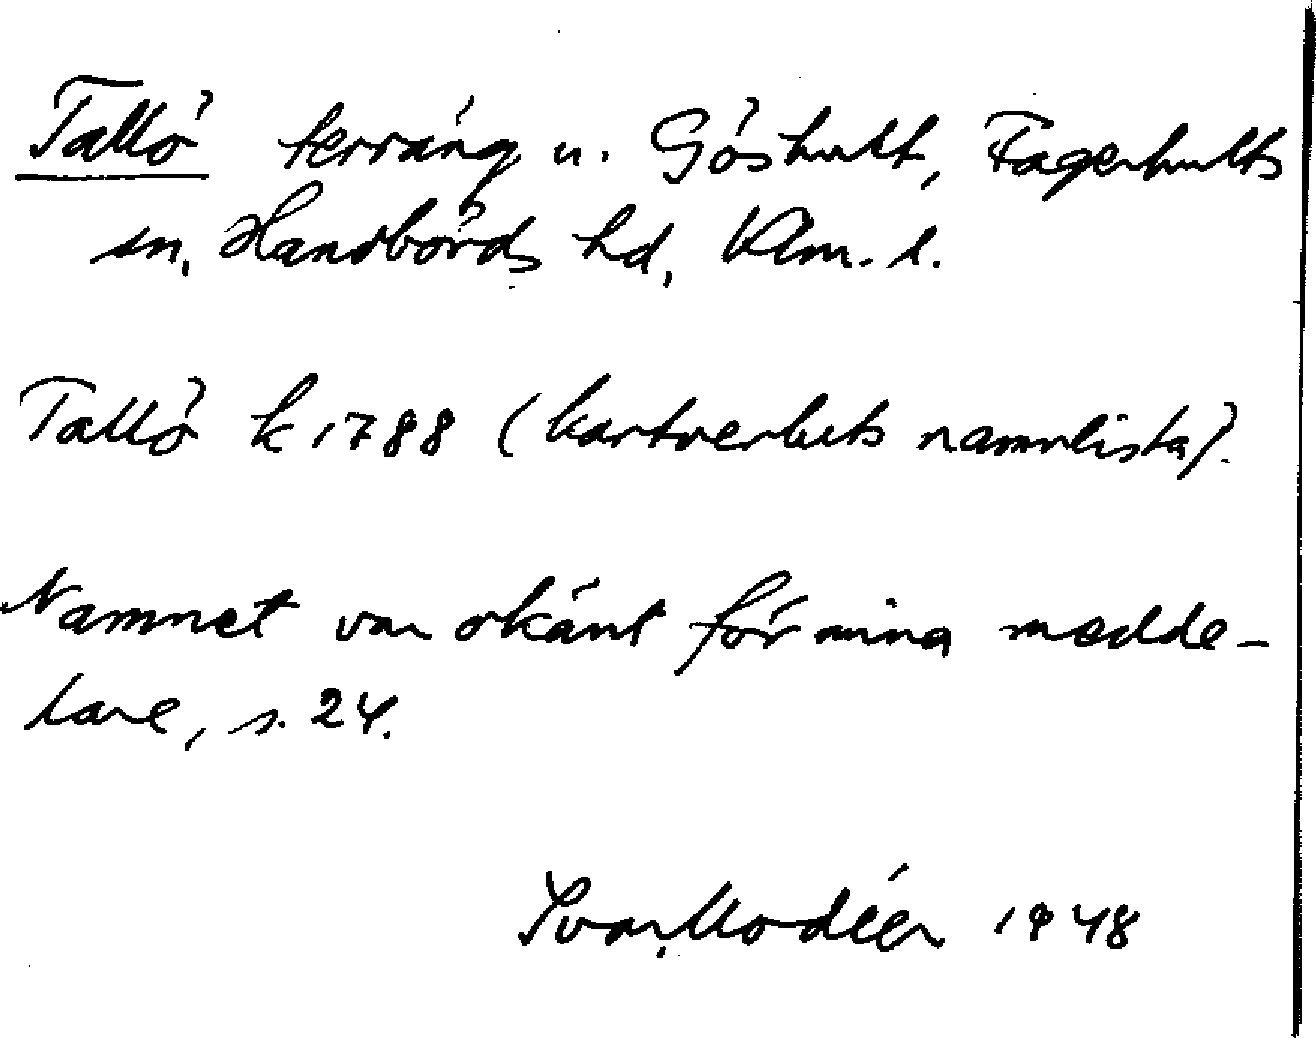 Tallö terräng u. Göshult, Fagerhults
sn, Handbörds hd, Klm. l.
Tallö k 1788 (kartverkets namnlista).
Namnet var okänt för mina medde-
lare, s. 24.
Ivar Modéer 1948